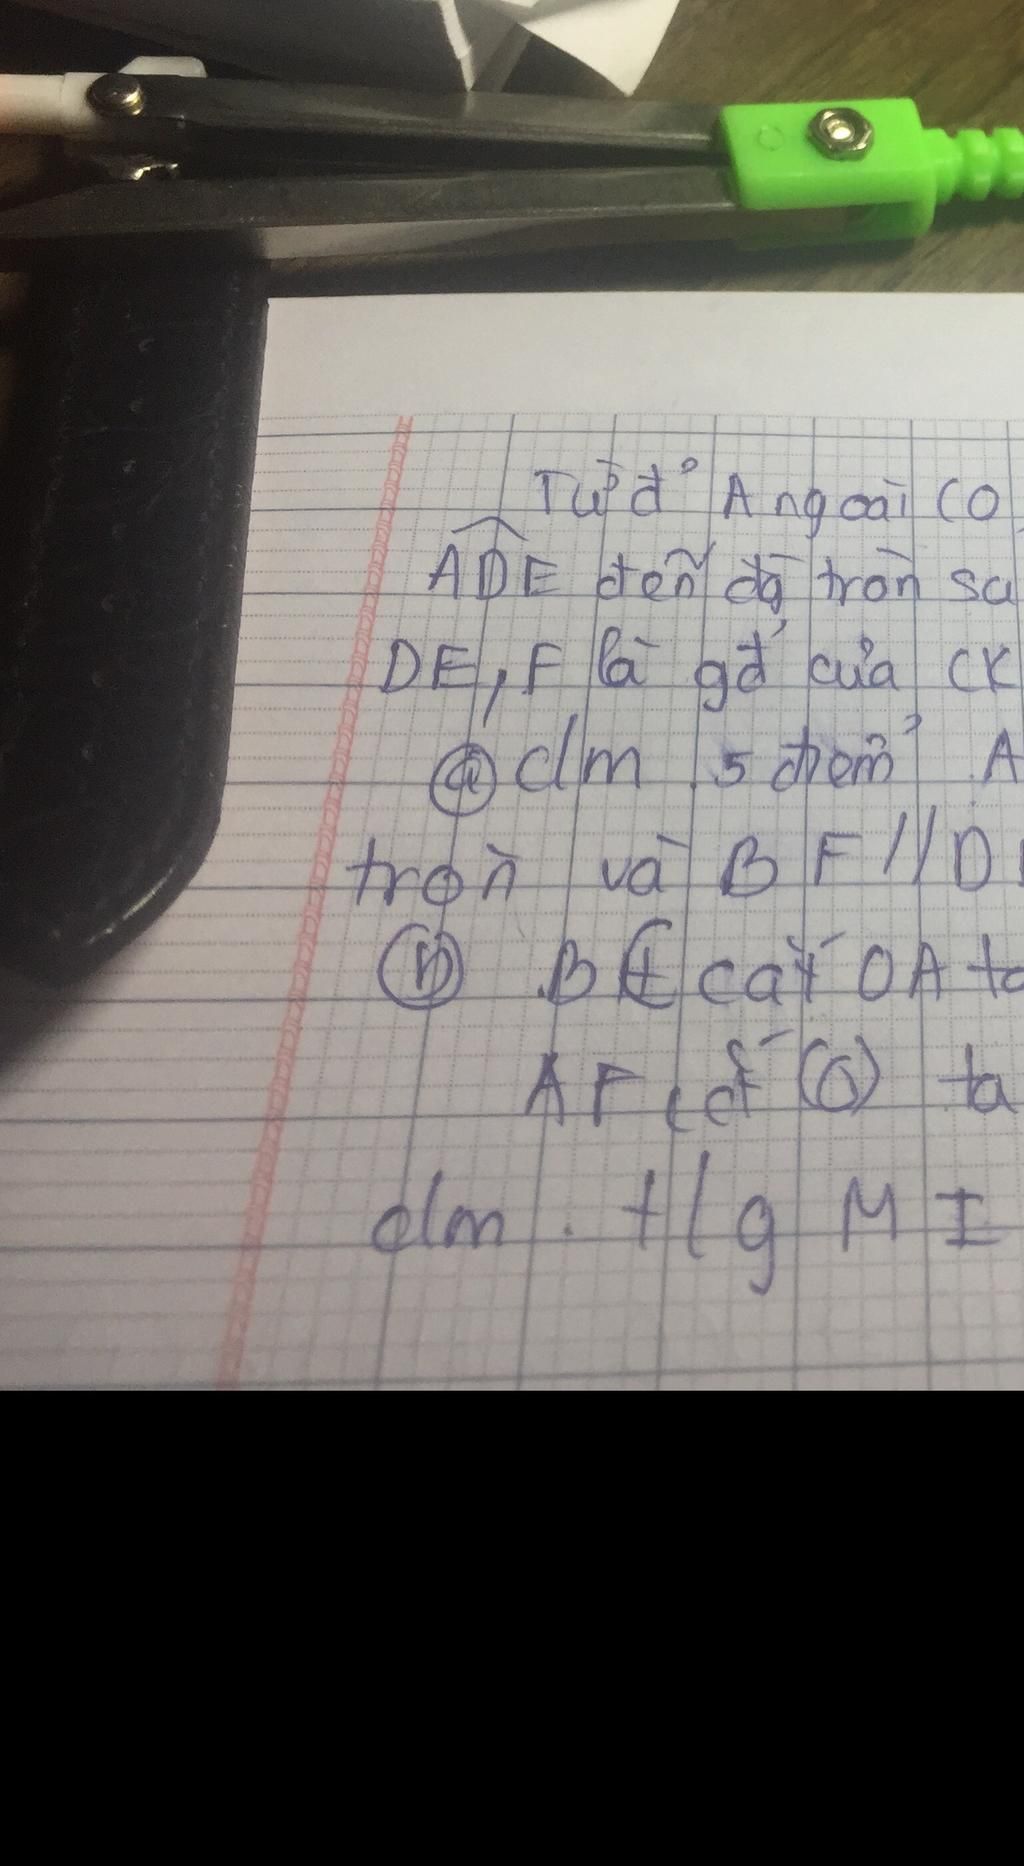 Từ đ' A ngoài (O
ADE đến đg tròn sa
DE, F là gđ' của CK
a) c/m 5 điểm A
tròn và BF // D
b) BC cắt OA tạ
AF cắt (O) tạ
c/m. t/g MI